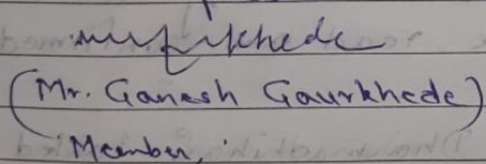 (Mr. Ganesh Gaurkhede)
Member,